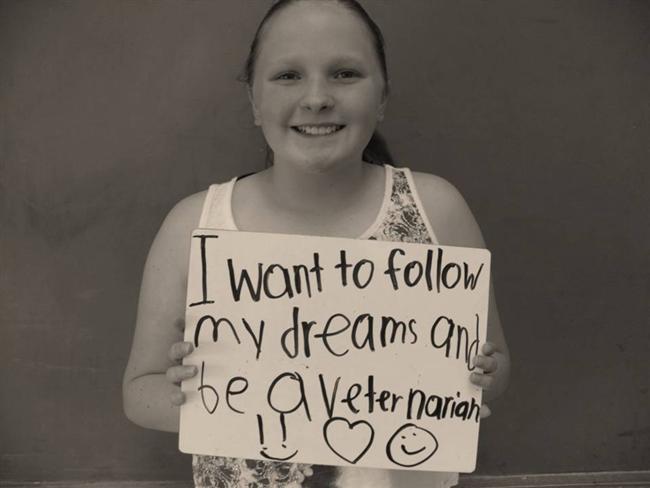 I want to follow
my dreams and
be a veternarian
!!